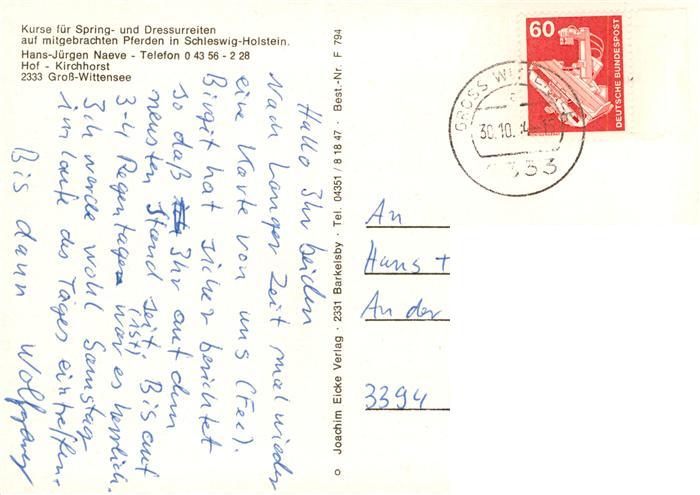 Kurse für Spring- und Dressurreiten
auf mitgebrachten Pferden in Schleswig-Holstein.
Hans-Jürgen Naeve - Telefon 0 43 56 - 2 28
Hof - Kirchhorst
2333 Groß-Wittensee
Hallo Ihr beiden
Nach langer Zeit mal wieder
eine Karte von uns (Fee).
Birgit hat sicher berichtet
so daß Ihr auf dem
neusten Stand seit. Bis auf
3-4 Regentage (ist) war es herrlich.
Ich werde wohl Samstag
im laufe des Tages eintreffen.
Bis dann Wolfgang
Joachim Eicke Verlag · 2331 Barkelsby · Tel. 04351 / 8 18 47 · Best.-Nr. F 794
60
DEUTSCHE BUNDESPOST
GROSS
30.10.
An
Hans +
An der
3394